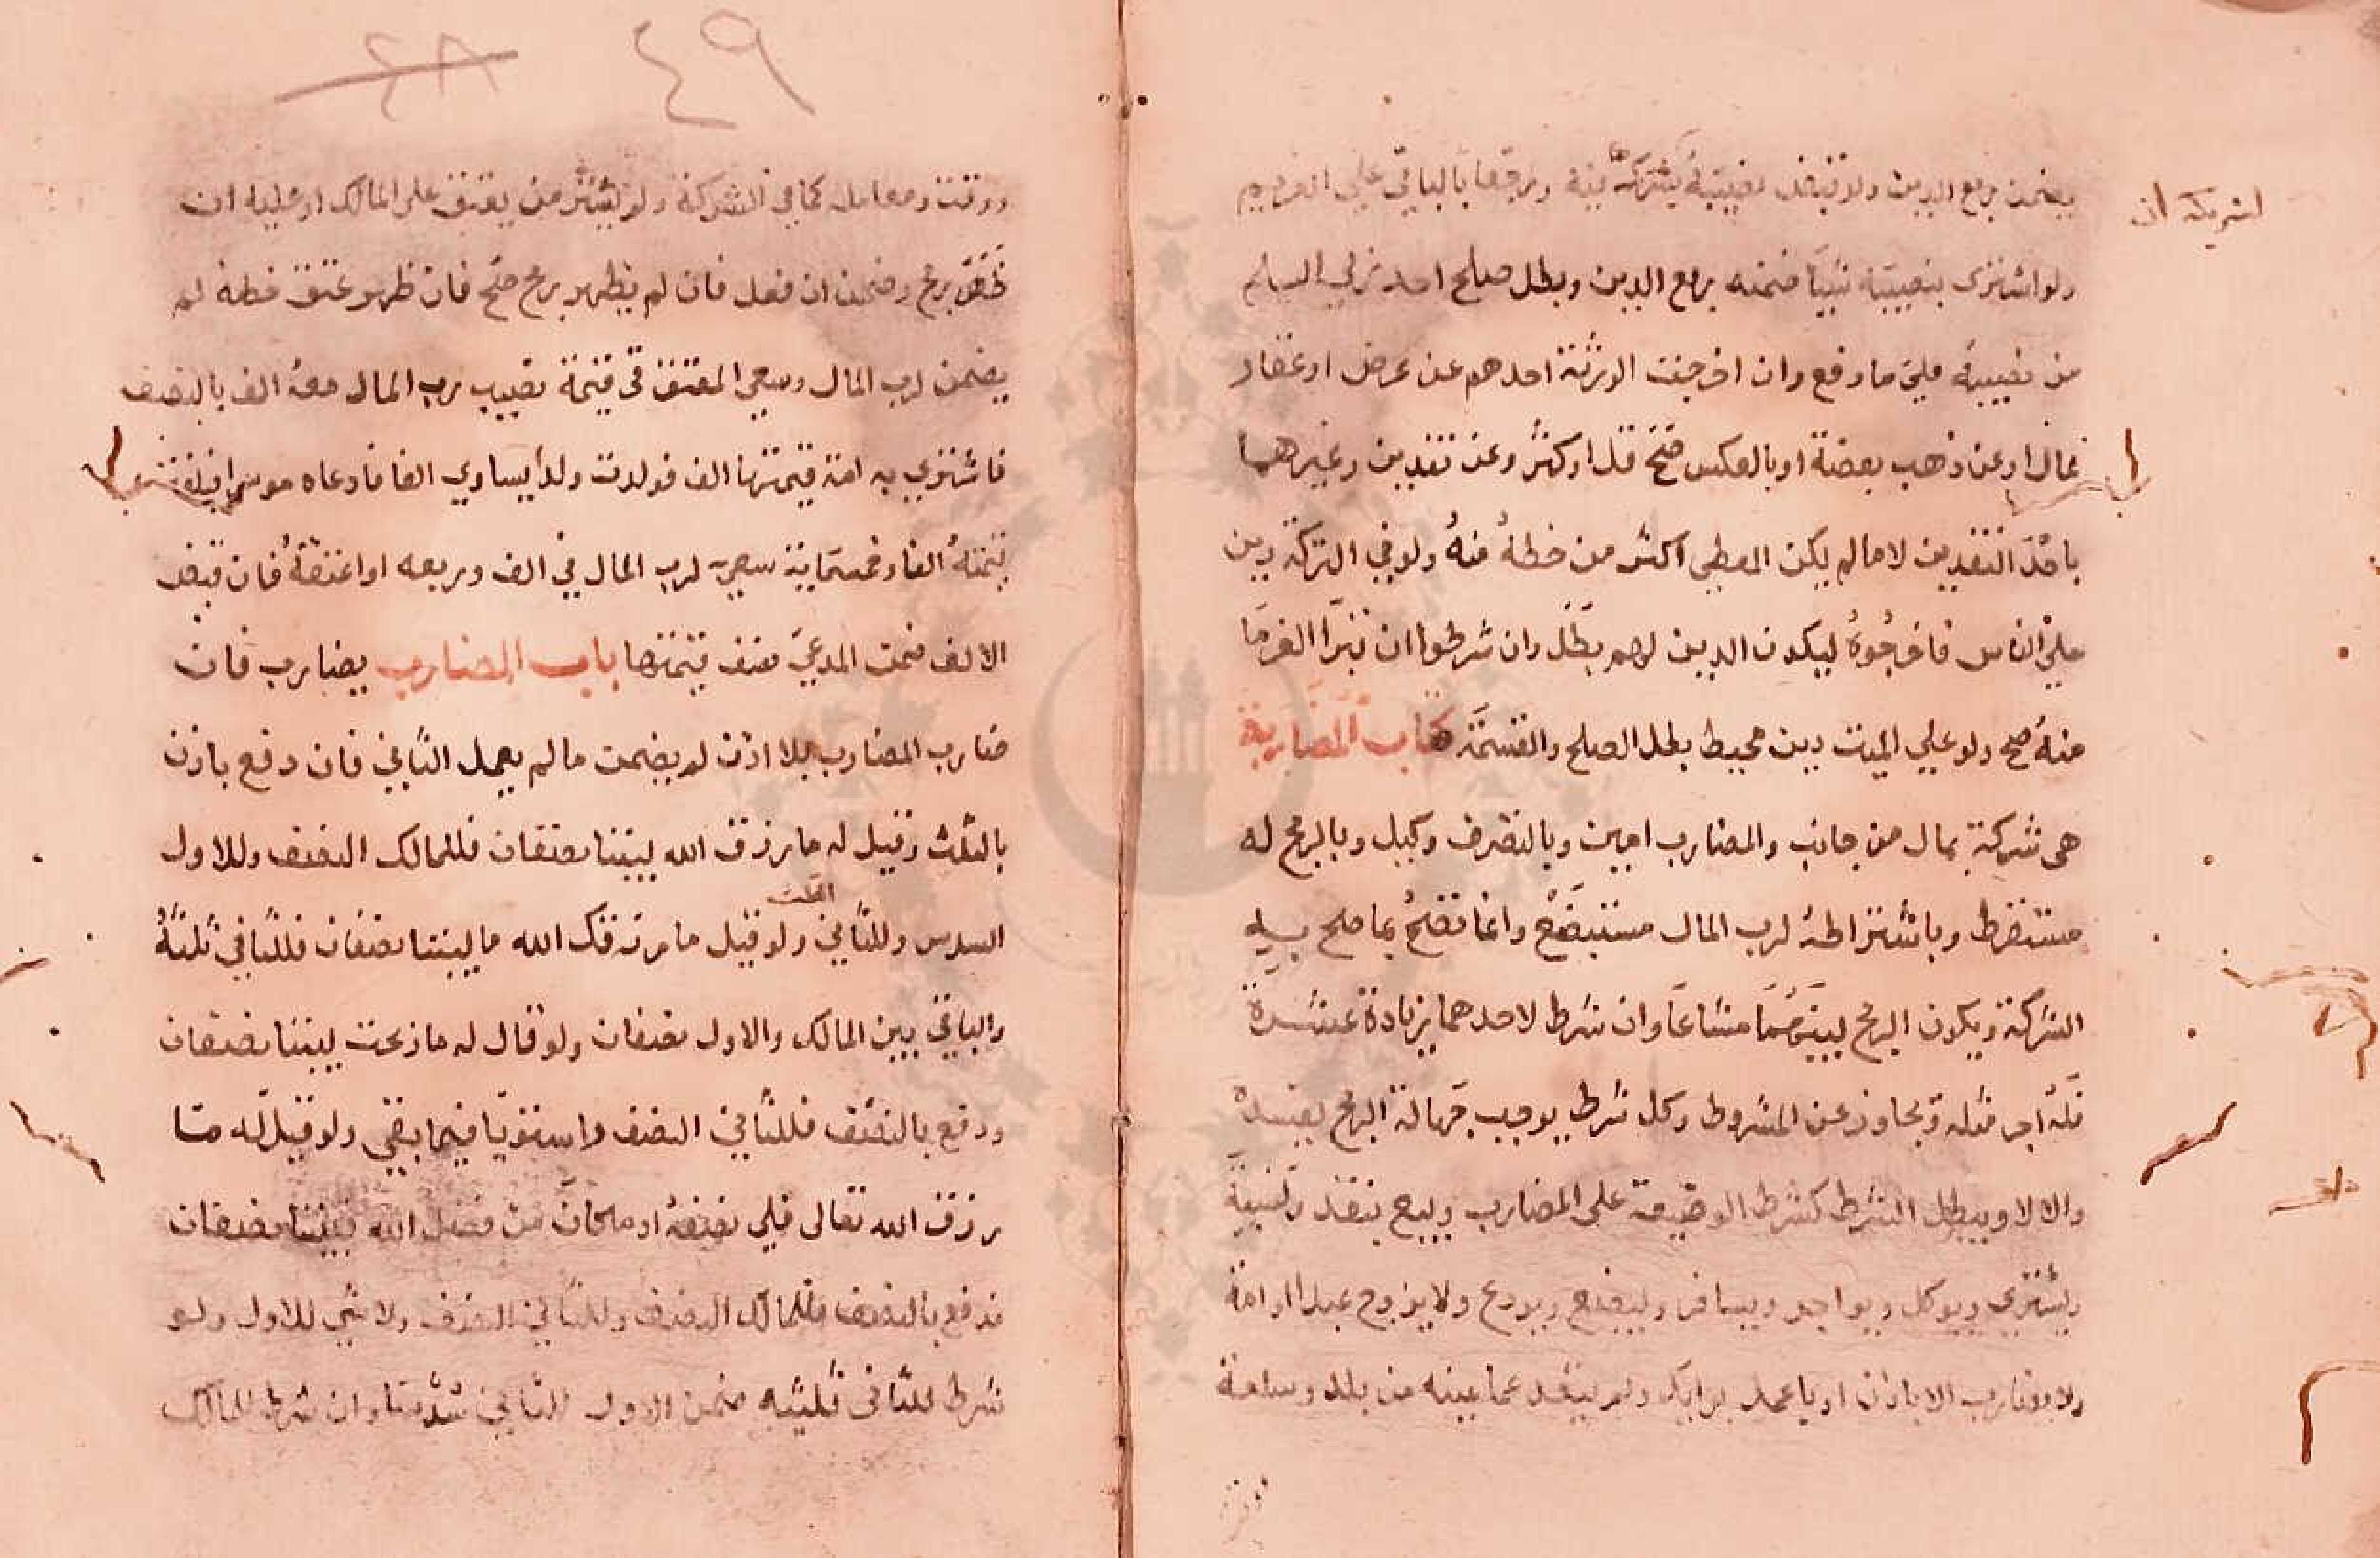 لشريكه ان
يضمن ربع الدين ولو قبض نصيبه يشركه فيه ورجعا بالباقي على الغريم
ولو اشترى بنصيبه شيئا ضمنه ربع الدين وبطل صلح احد ربي السلم
من نصيبه على ما دفع وان اخرجت الورثة احدهم عن عرض او عقار
بمال او عن ذهب بفضة او بالعكس صح قل او كثر وعن نقدين وغيرهما
باحد النقدين لا ما لم يكن المعطى اكثر من حظه منه ولو في التركة دين
على الناس فاخرجوه ليكون الدين لهم بطل وان شرطوا ان تبرا الغرما
منه صح ولو على الميت دين محيط بطل الصلح والقسمة كتاب المضاربة
هي شركة بمال من جانب والمضارب امين وبالتصرف وكيل وبالربح له
مستقرط وباشتراطه لرب المال مستبضع وانما تصح بما صلح به
الشركة ويكون الربح بينهما مشاعا وان شرط لاحدهما زيادة عشرة
فله اجر مثله ولا يجاوز عن المشروط وكل شرط يوجب جهالة الربح يفسده
والا لا ويبطل الشرط كشرط الوضيعة على المضارب ويبيع بنقد ونسيئة
ويشتري ويوكل ويواجر ويسافر ويبضع ويودع ولا يزوج عبدا او امة
ولا يضارب الا باذن او باعمل برايك ولم يتعد عما عينه من بلد وسلعة
٤٩
٤٨
ووقت ومعامل كما في الشركة ولم يشتر من يعتق على المالك او عليه ان
ظهر ربح وضمن ان فعل فان لم يظهر ربح صح فان ظهر عتق حظه لم
يضمن لرب المال وسعى المعتق في قيمة نصيب رب المال معه الف بالنصف
فاشترى به امة قيمتها الف فولدت ولدا يساوي الفا فادعاه موسرا فبلغت
قيمته الفا وخمسماية سعى لرب المال في الف وربعه او اعتقه فان قبض
الالف ضمن المدعي نصف قيمتها باب المضارب يضارب فان
ضارب المضارب بلا اذن لم يضمن ما لم يعمل الثاني فان دفع باذن
بالثلث وقيل له ما رزق الله بيننا نصفان فللمالك النصف وللاول
السدس وللثاني الثلث ولو قيل ما رزقك الله ما بيننا نصفان فللثاني ثلثه
والباقي بين المالك والاول نصفان ولو قال له ما ربحت بيننا نصفان
ودفع بالنصف فللثاني النصف واستويا فيما بقي ولو قيل له ما
رزق الله تعالى فلي نصفه او ما كان من فضل الله بيننا نصفان
فدفع بالنصف فللمالك النصف وللثاني النصف ولا شي للاول ولو
شرط للثاني ثلثيه ضمن الاول للثاني سدسا وان شرط للمالك